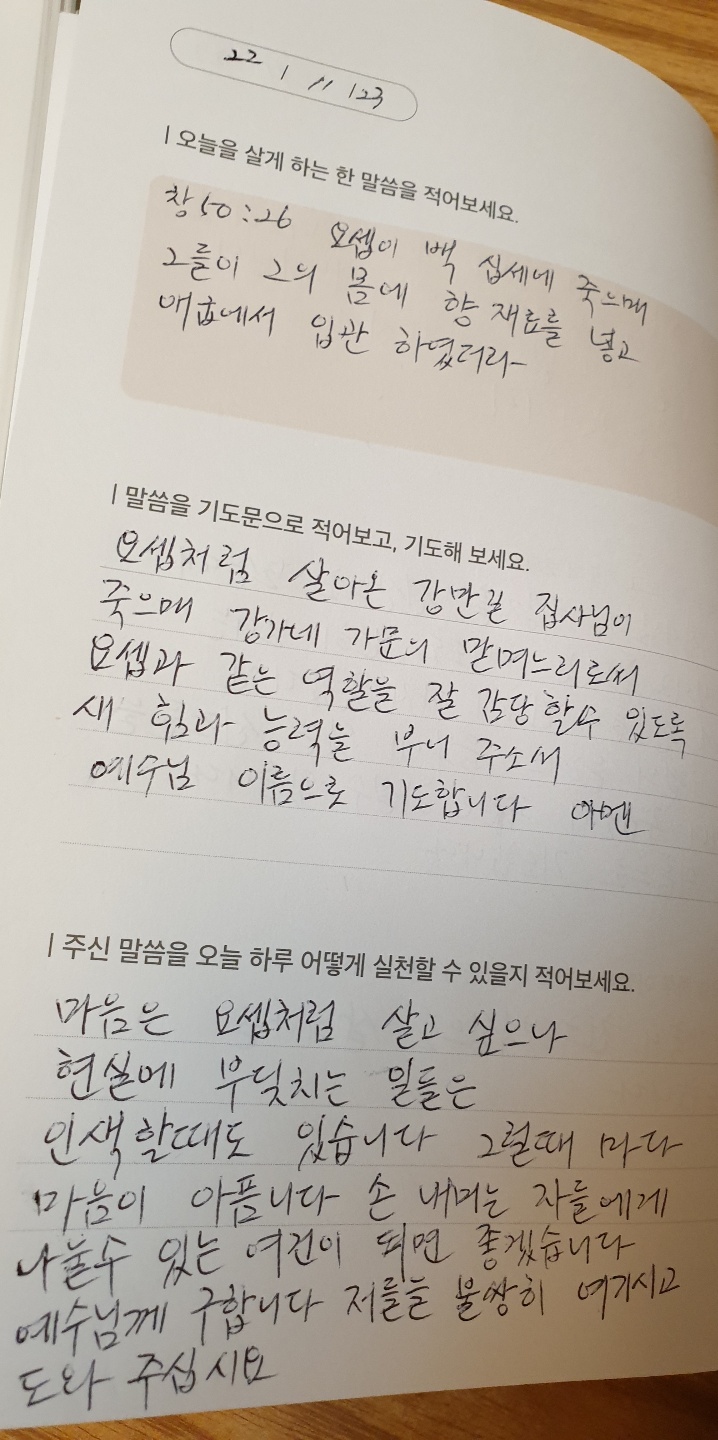 22 / 11 / 23
오늘을 살게 하는 한 말씀을 적어보세요.
창 50:26 요셉이 백 십세에 죽으매
그들이 그의 몸에 향 재료를 넣고
애굽에서 입관 하였더라
말씀을 기도문으로 적어보고, 기도해 보세요.
요셉처럼 살아온 강만길 집사님이
죽으매 강가네 가문의 맏며느리로써
요셉과 같은 역활을 잘 감당 할수 있도록
새 힘과 능력을 부어 주소서
예수님 이름으로 기도합니다 아멘
주신 말씀을 오늘 하루 어떻게 실천할 수 있을지 적어보세요.
마음은 요셉처럼 살고 싶으나
현실에 부딪치는 일들은
인색 할때도 있습니다 그럴때 마다
마음이 아픕니다 손 내미는 자들에게
나눌수 있는 여건이 되면 좋겠습니다
예수님께 구합니다 저들을 불쌍히 여기시고
도와 주십시요